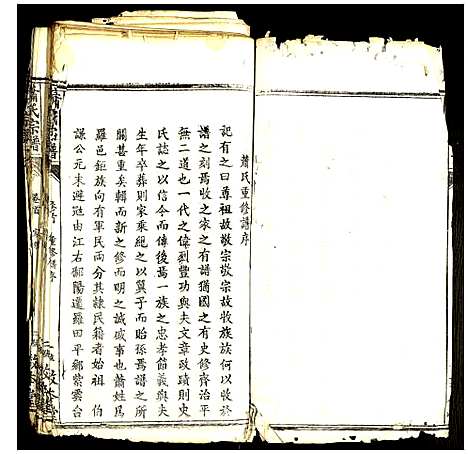 蕭氏重修譜序
記有之曰尊祖故敬宗敬宗故收族族何以收於
譜之刻焉收之家之有譜猶國之有史修齊治平
無二道也一代之偉烈豐功與夫文章政蹟則史
氏誌之以信今而傳後焉一世之忠孝節義與夫
生年卒葬則家乘紀之以翼子而貽孫焉譜之所
關甚重矣輯而新之修而明之誠盛事也蕭姓為
羅邑鉅族向有軍民兩分其隸民籍者始祖伯
謙公元末避寇由江右鄱陽遷羅田平鄉紫雲台
蕭氏宗譜
卷首
重修譜序
二
氏宗譜
卷首